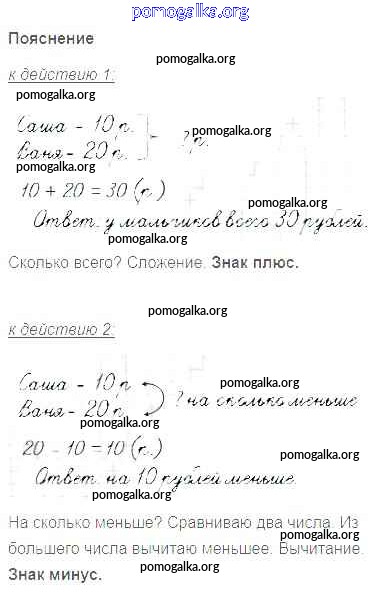 pomogalka.org
Пояснение
pomogalka.org
к действию 1:
pomogalka.org
Саша - 10 р.
pomogalka.org
? р.
Ваня - 20 р.
pomogalka.org
10 + 20 = 30 (р.)
pomogalka.org
Ответ. у мальчиков всего 30 рублей.
pomogalka.org
Сколько всего? Сложение. Знак плюс.
pomogalka.org
к действию 2:
pomogalka.org
Саша - 10 р
pomogalka.org
? на сколько меньше
Ваня - 20 р.
pomogalka.org
20 - 10 = 10 (р.)
pomogalka.org
Ответ. на 10 рублей меньше.
pomogalka.org
На сколько меньше? Сравниваю два числа. Из
большего числа вычитаю меньшее. Вычитание.
Знак минус.
pomogalka.org